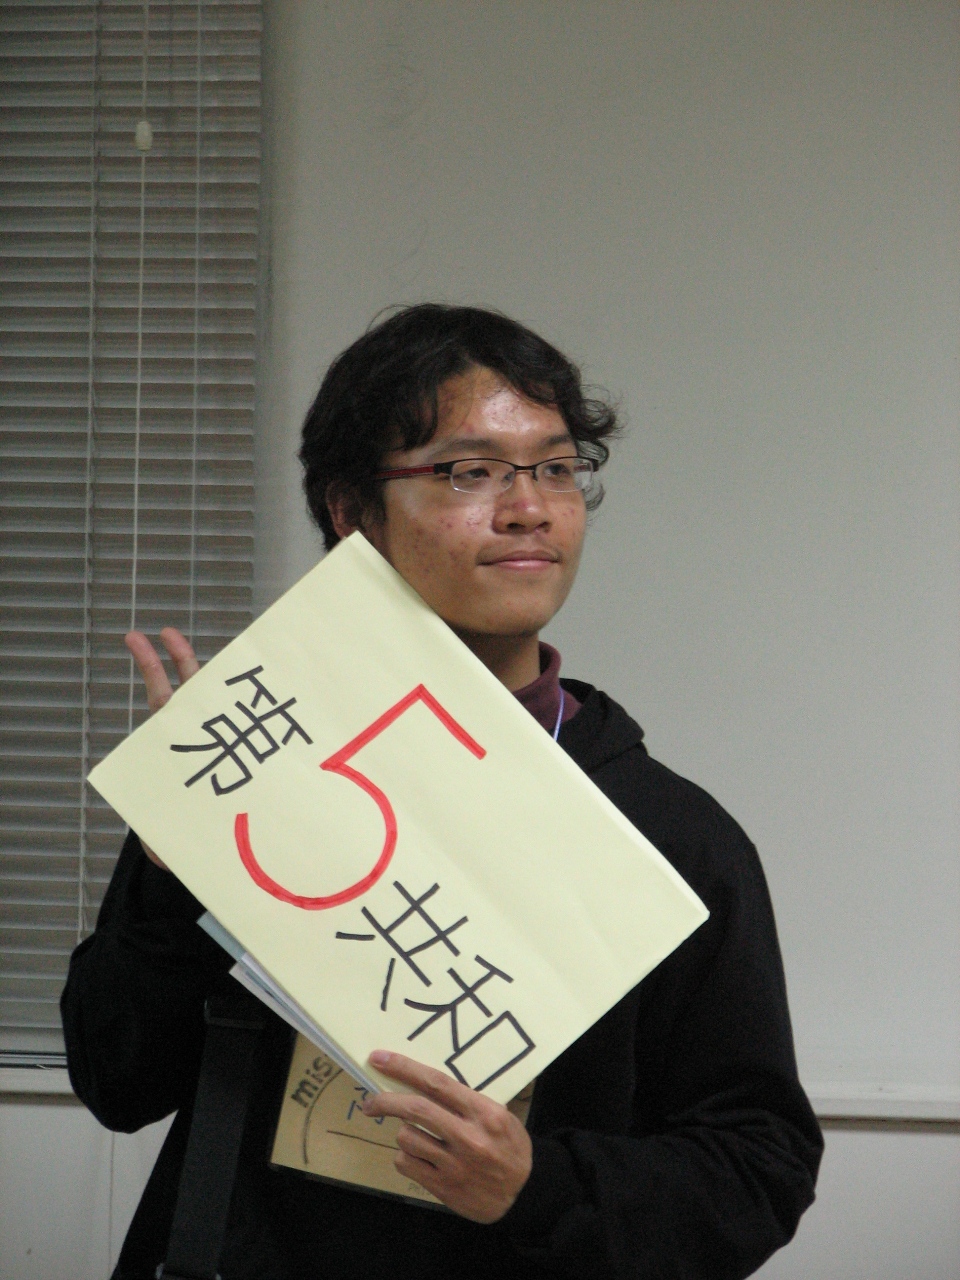 第5共和
mis